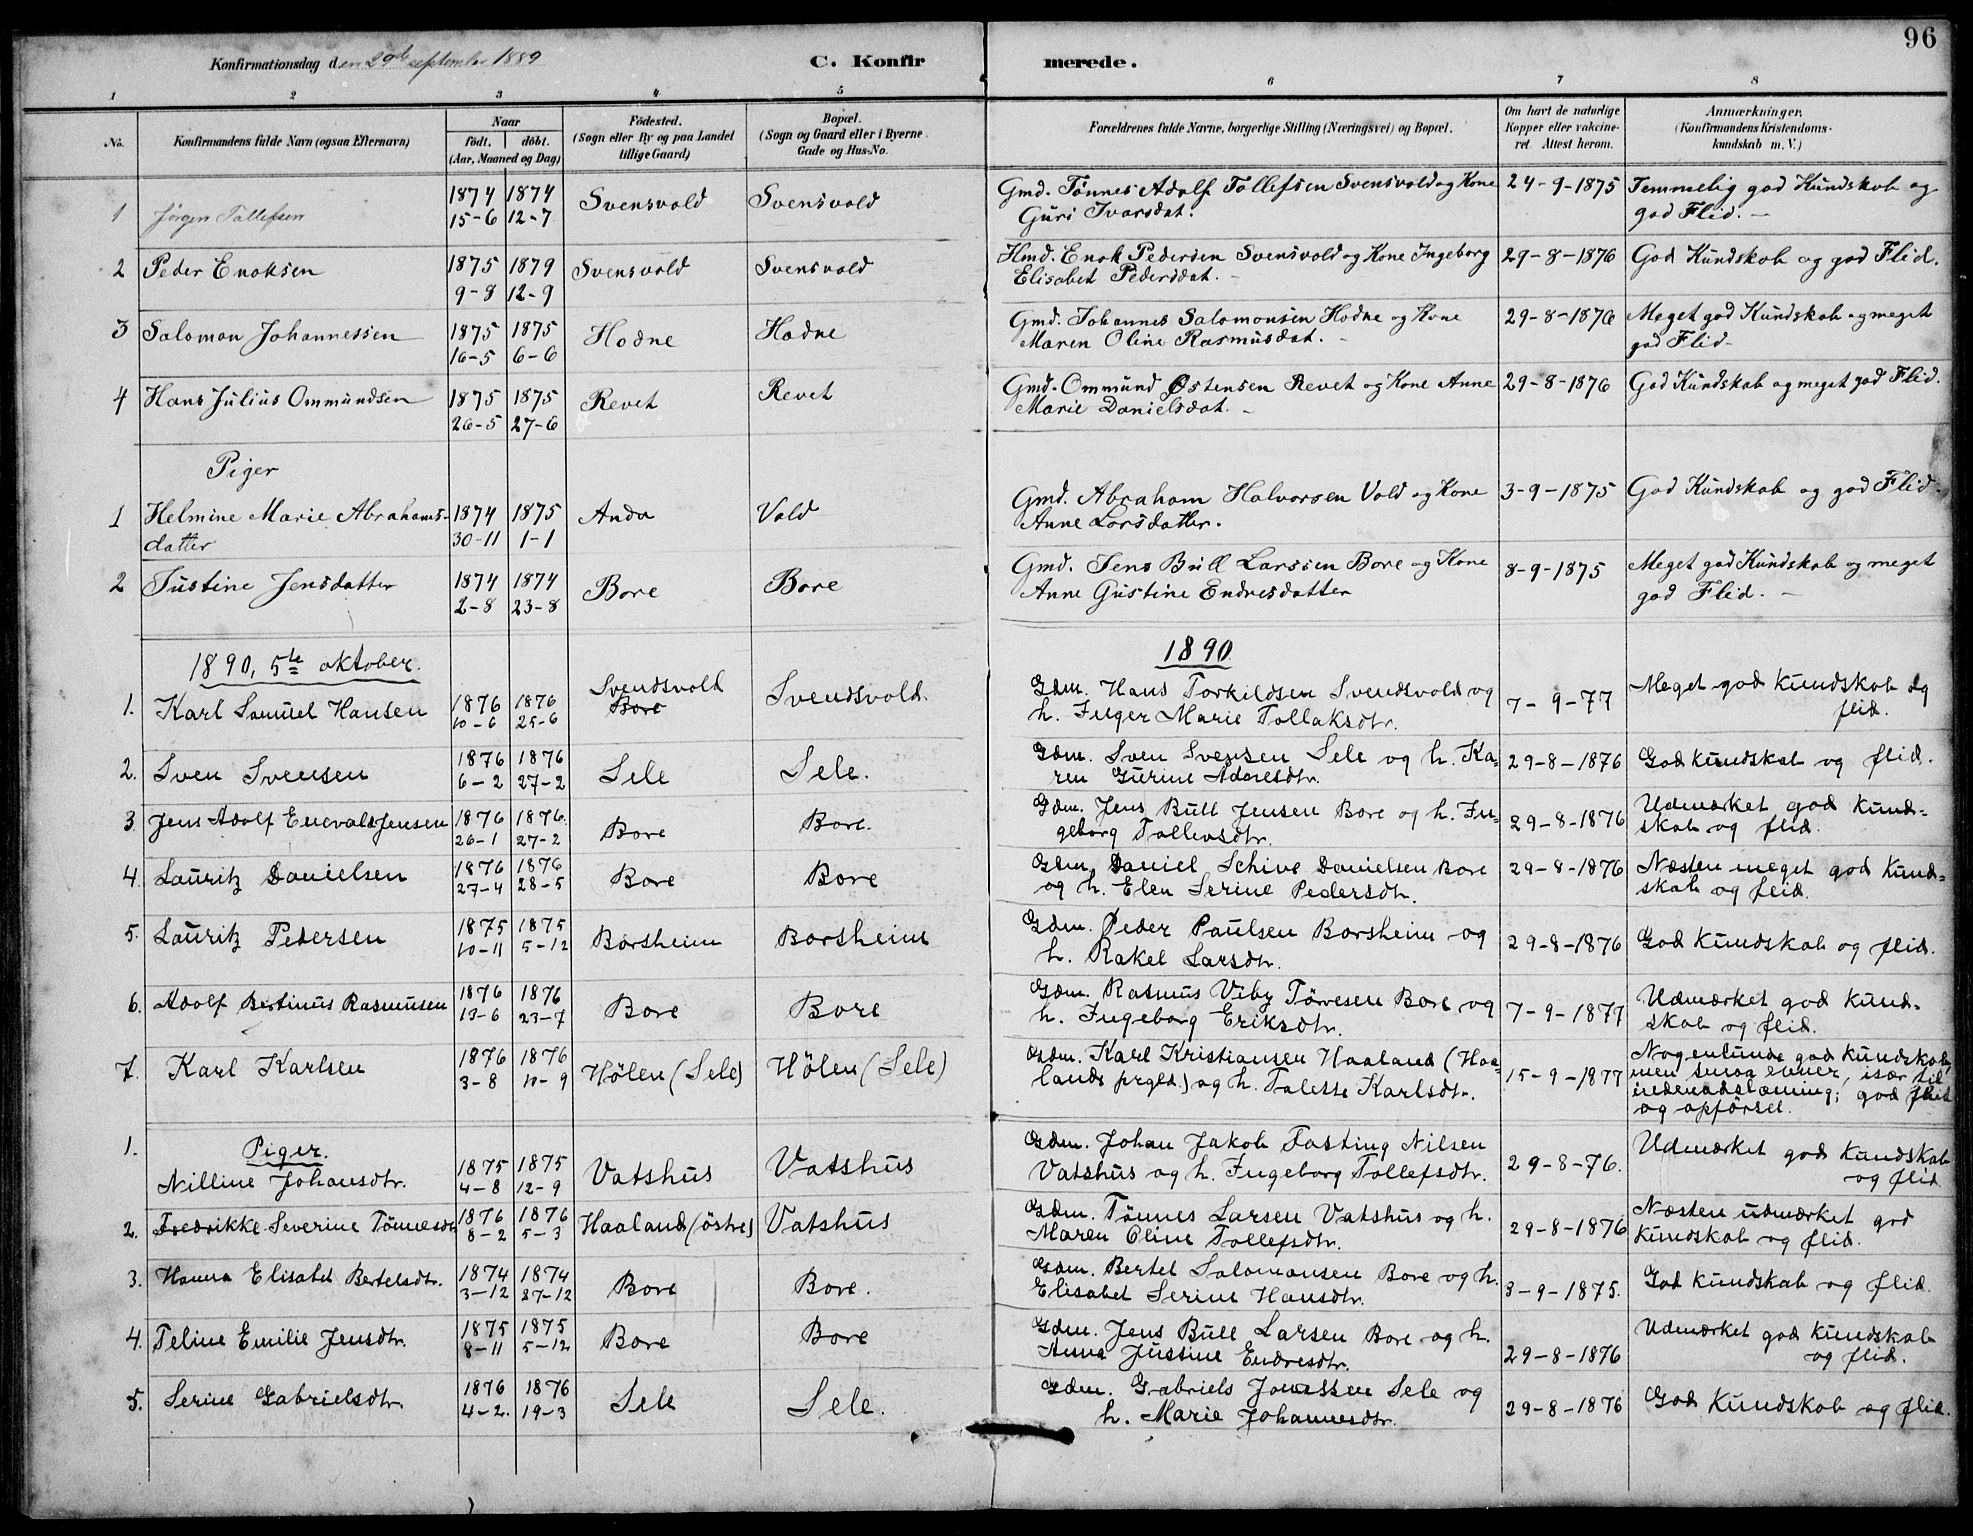 96
Konfirmationsdag den 29de september 1889
C. Konfirmerede.
1 2 3 4 5 6 7 8
No. Konfirmandens fulde Navn (ogsaa Efternavn)
Naar
födt. döbt.
(Aar, Maaned og Dag)
Födested.
(Sogn eller By og paa Landet
tillige Gaard)
Bopæl.
(Sogn og Gaard eller i Byerne
Gade og Hus-No.
Forældrenes fulde Navne, borgerlige Stilling (Næringsvei) og Bopæl.
Om havt de naturlige
Kopper eller vakcine-
ret. Attest herom.
Anmærkninger.
(Konfirmandens Kristendoms-
kundskab m. V.)
1 Jørgen Tollefsen 1874 15-6 1874 12-7 Svensvold Svensvold Gmd. Tönnes Adolf Tollefsen Svensvold og Kone 24-9-1875 Temmelig god Kundskab og
Guri Ivarsdat. god Flid.
2 Peder Enoksen 1875 9-8 1879 12-9 Svensvold Svensvold Hmd. Enok Pedersen Svensvold og Kone Ingeborg 29-8-1876 God Kundskab og god Flid.
Elisabet Pedersdat.
3 Salomon Johannessen 1875 16-5 1875 6-6 Hodne Hodne Gmd. Johannes Salomonsen Hodne og Kone 29-8-1876 Meget god Kundskab og meget
Maren Oline Rasmusdat. god Flid
4 Hans Julius Ommundsen 1875 26-5 1875 27-6 Revet Revet Gmd. Ommund Østensen Revet og Kone Anne 29-8-1876 God Kundskab og meget god Flid.
Marie Danielsdat.
Piger
1 Helmine Marie Abrahams- 1874 30-11 1875 1-1 Anda Vold Gmd. Abraham Halvorsen Vold og Kone 3-9-1875 God Kundskab og god Flid.
datter Anne Larsdatter.
2 Justine Jensdatter 1874 2-8 1874 23-8 Bore Bore Gmd. Jens Bull Larssen Bore og Kone 8-9-1875 Meget god Kundskab og meget
Anne Gustine Endresdatter god Flid.
1890, 5te oktober. 1890
1. Karl Samuel Hansen 1876 10-6 1876 25-6 Svendsvold Bore Svendsvold. Gdm. Hans Torkildsen Svendsvold og 7-9-77 Meget god kundskab og
h. Inger Marie Tollaksdtr. flid.
2. Sven Svensen 1876 6-2 1876 27-2 Sele Sele. Gdm. Sven Svensen Sele og h. Ka- 29-8-1876 God kundskab og flid.
ren Gurine Adnesdtr.
3 Jens Adolf Enevald Jensen 1876 26-1 1876. 27-2 Bore Bore. Gdm. Jens Bull Jensen Bore og h. In- 29-8-1876 Udmærket god kund-
geborg Tollevsdtr. skab og flid.
4. Lauritz Danielsen 1876 27-4 1876 28-5 Bore Bore Gdm. Daniel Schive Danielsen Bore 29-8-1876 Næsten meget god kund-
og h. Elen Serine Pedersdtr. skab og flid.
5. Lauritz Pedersen 1875 10-11 1875 5-12 Borsheim Borsheim Gdm. Peder Paulsen Borsheim og 29-8-1876 God kundskab og flid.
h. Rakel Larsdtr.
6. Adolf Bertinus Rasmusen 1876 13-6 1876 23-7 Bore Bore Gdm. Rasmus Viby Törresen Bore og 7-9-1877 Udmærket god kund-
h. Ingeborg Eriksdtr. skab og flid.
7. Karl Karlsen 1876 3-8 1876 10-9 Hölen (Sele) Hölen (Sele) Gdm. Karl Kristiansen Haaland (Haa- 15-9-1877 Nogenlunde god kundskab,
lands prgld.) og h. Talette Karlsdtr. men smaa evner, især til
indenadslæsning; god flid
og opförsel.
Piger.
1. Nilline Johansdtr. 1875 4-8 1875 12-9 Vatshus Vatshus Gdm. Johan Jakob Fasting Nilsen 29-8-76. Udmærket god kundskab
Vatshus og h. Ingeborg Tollefsdtr. og flid
2. Fredrikke Severine Tönnesdtr 1876 8-2 1876 5-3 Haaland (östre) Vatshus Gdm. Tönnes Larsen Vatshus og h. 29-8-1876 Næsten udmærket god
Maren Oline Tollefsdtr. kundskab og flid.
3. Hanna Elisabet Bertelsdtr. 1874 3-12 1874 27-12 Bore Bore. Gdm. Bertel Salomonsen Bore og h. 3-9-1875. God kundskab og flid.
Elisabet Serine Hansdtr.
4. Teline Emilie Jensdtr. 1875 8-11 1875 5-12 Bore Bore Gdm. Jens Bull Larsen Bore og h. 29-8-1876 Udmærket god kundskab
Anna Justine Endresdtr. og flid.
5. Serine Gabrielsdtr. 1876 4-2. 1876 19-3 Sele Sele. Gdm. Gabriels Jonassen Sele og 29-8-1876 God kundskab og flid.
h. Marie Johannesdtr.